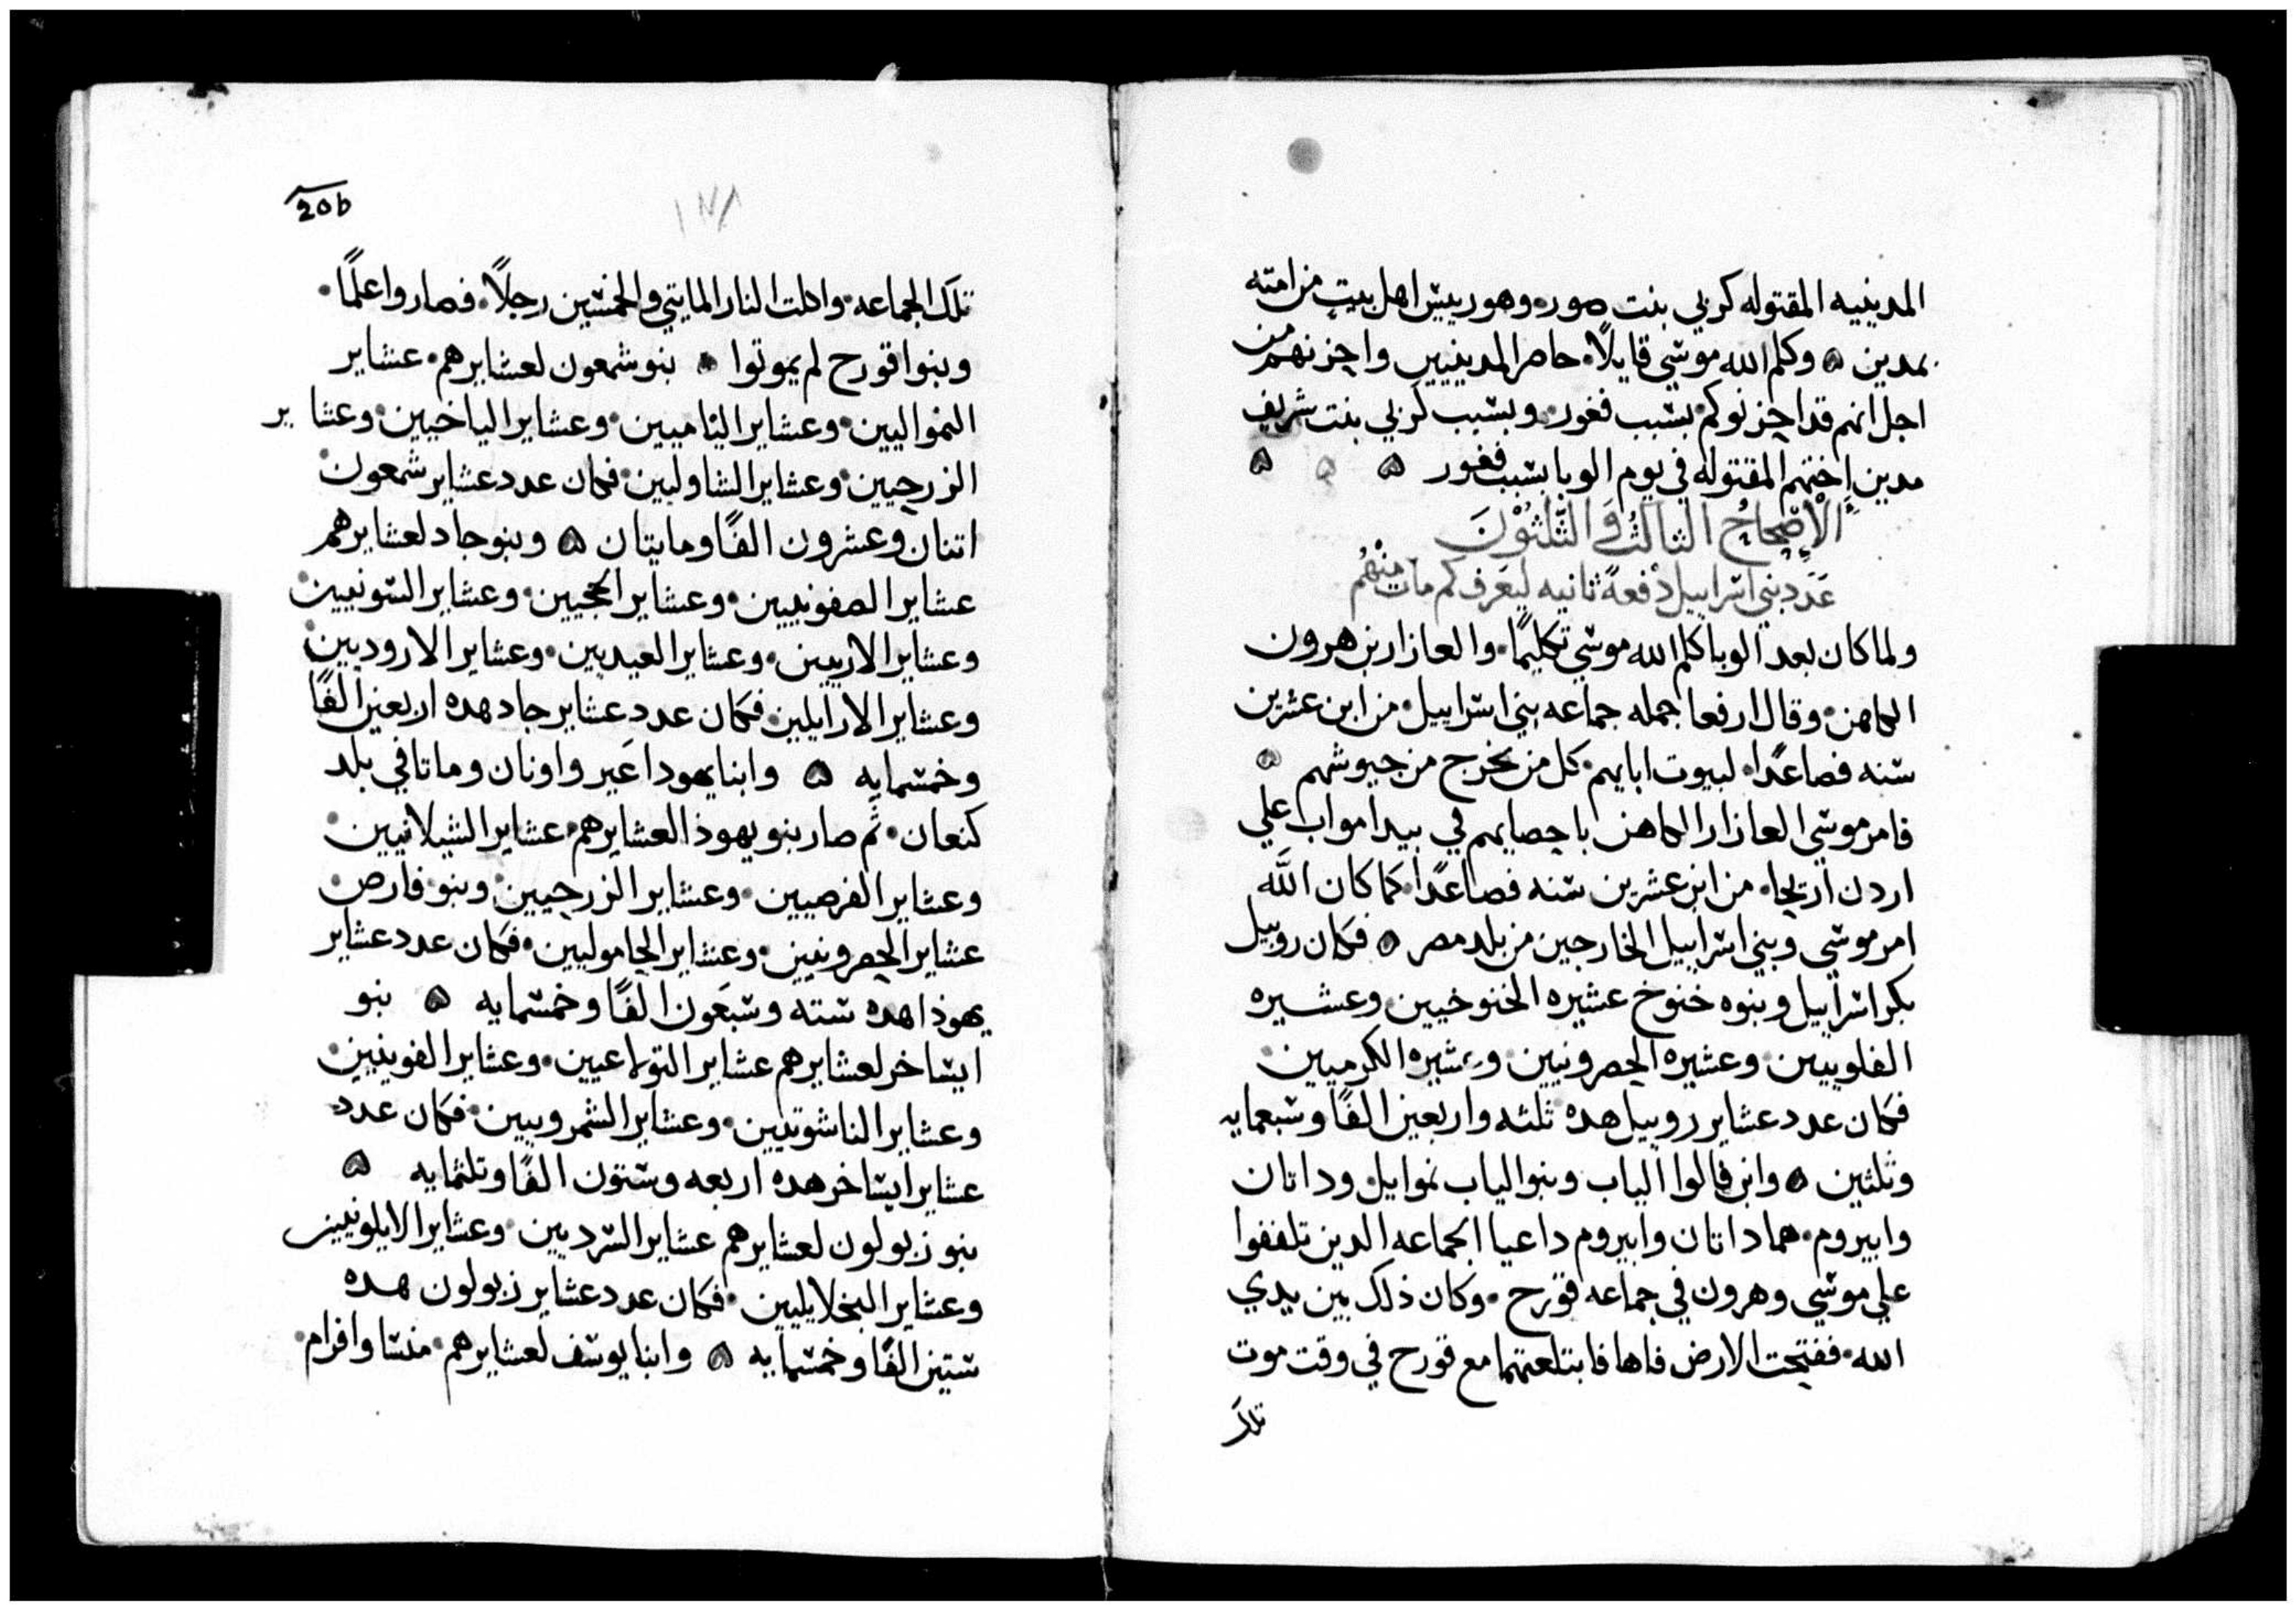 المدينيه المقتوله كزبي بنت صور وهو رييس اهل بيت من امته
بمدين ۞ وكلم الله موسي قايلاً حاصر المدينيين واحزنهم من
اجل انهم قد احزنوكم بسبب فغور وبسبب كزبي بنت شريف
مدين اختهم المقتوله في يوم الوبا بسبب فغور ۞ ۞ ۞
الْاِصْحاحُ الثالثُ وَالثَّلثُوْنَ
عَدَد بني اسراييل دفعةً ثانيه ليَعرف كم مات منْهُم
ولما كان بعد الوبا كلم الله موسي تكليمًا والعازار بن هرون
الكاهن وقال ارفعا جمله جماعه بني اسراييل من ابن عشرين
سنه فصاعدًا لبيوت ابايهم كل من يخرج من جيوشهم ۞
فامر موسي العازار الكاهن باحصايهم في بيدا مواب علي
اردن اريحا من ابن عشرين سنه فصاعدًا كما كان اللَّه
امر موسي وبني اسراييل الخارجين من بلد مصر ۞ فكان روبيل
بكر اسراييل وبنوه خنوخ عشيره الخنوخيين وعشيره
الفلوييين وعشيره الحصرونيين وعشيره الكرميين
فكان عدد عشاير روبيل هده ثلثه واربعين الفًا وسبعمايه
وثلثين ۞ وابن فالوا الياب وبنو الياب نموايل وداتان
وابيروم هما داتان وابيروم داعيا الجماعه الدين تلففوا
علي موسي وهرون في جماعه قورح وكان ذلك بين يدي
الله ففتحت الارض فاها فابتلعتهما مع قورح في وقت موت
تلك
20b
١٧٨
تلك الجماعه واكلت النار المايتي والخمسين رجلاً فصاروا علمًا
وبنوا قورح لم يموتوا ۞ بنو شمعون لعشايرهم عشاير
النمواليين وعشاير الياميين وعشاير الياخيين وعشاير
الزرحيين وعشاير الشاوليين فكان عدد عشاير شمعون
اتنان وعشرون الفًا ومايتان ۞ وبنو جاد لعشايرهم
عشاير الصفونيين وعشاير الحجيين وعشاير السونيين
وعشاير الازنيين وعشاير العيديين وعشاير الاروديين
وعشاير الارايلين فكان عدد عشاير جاد هده اربعين الفًا
وخمسمايه ۞ وابنا يهودا عَير واونان وماتا في بلد
كنعان ثم صار بنو يهوذا لعشايرهم عشاير الشيلانيين
وعشاير الفرصيين وعشاير الزرحيين وبنو فارص
عشاير الحصرونيين وعشاير الحاموليين فكان عدد عشاير
يهوذا هده سته وسبعَون الفًا وخمسمايه ۞ بنو
ايساخر لعشايرهم عشاير التولاعيين وعشاير الفوينيين
وعشاير الناشوتيين وعشاير الشمرويين فكان عدد
عشاير ايساخر هده اربعه وستون الفًا وتلثمايه ۞
بنو زبولون لعشايرهم عشاير السرديين وعشاير الايلونيين
وعشاير النخلايليين فكان عدد عشاير زبولون هده
ستين الفًا وخمسمايه ۞ وابنا يوسف لعشايرهم منسا وافرام